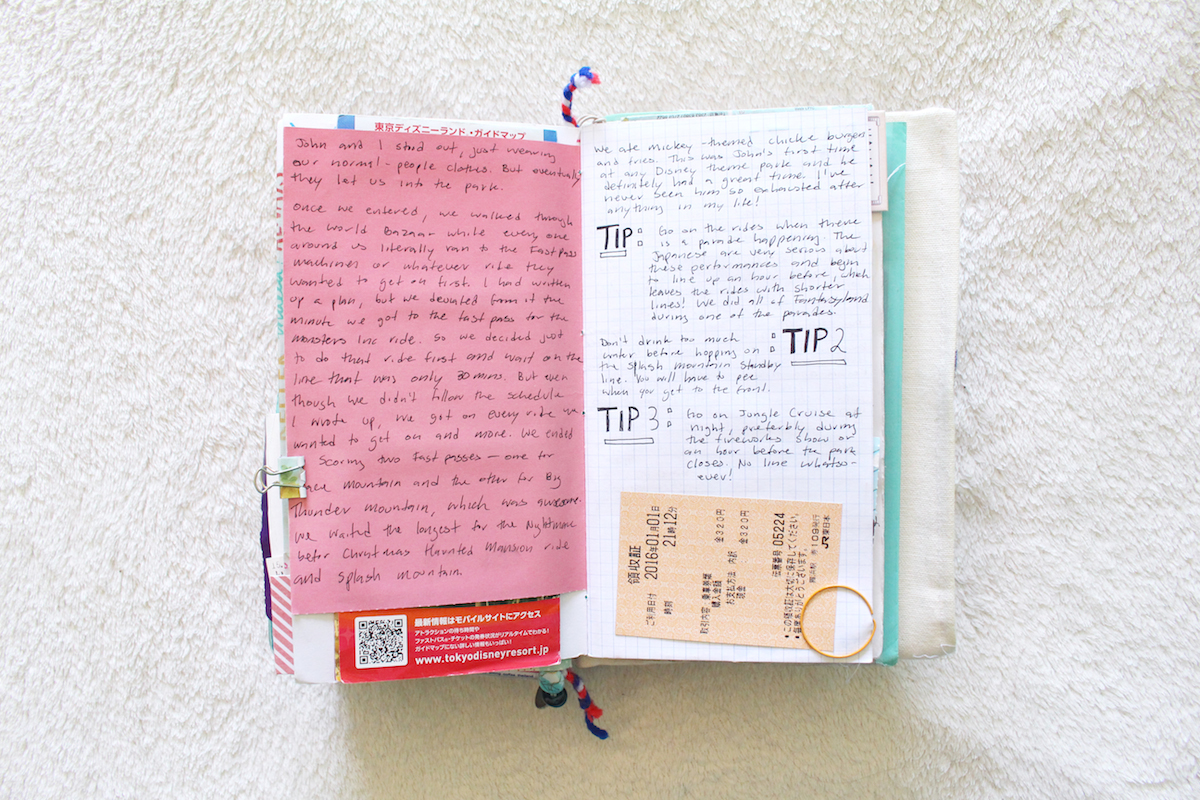 東京ディズニーランド・ガイドマップ
John and I stood out, just wearing
our normal-people clothes. But eventually
they let us into the park.
Once we entered, we walked through
the World Bazaar while every one
around us literally ran to the Fastpass
machines or whatever ride they
wanted to get on first. I had written
up a plan, but we deviated from it the
minute we got to the fast pass for the
monsters Inc ride. So we decided just
to do that ride first and wait on the
line that was only 30 mins. But even
though we didn't follow the schedule
I wrote up, we got on every ride we
wanted to get on and more. We ended
scoring two fast passes – one for
mountain and the other for Big
Thunder Mountain, which was awesome.
We waited the longest for the Nightmare
befor Christmas Haunted Mansion ride
and splash mountain.
最新情報はモバイルサイトにアクセス
アトラクションの待ち時間や
ファストパス・チケットの発券状況がリアルタイムでわかる!
ガイドマップにない詳しい情報もいっぱい!
www.tokyodisneyresort.jp
We ate mickey-themed chicke burgers
and fries. This was John's first time
at any Disney theme park and he
definitely had a great time. I've
never seen him so exhausted after
anything in my life!
TIP: Go on the rides when there
is a parade happening. The
Japanese are very serious about
these performances and begin
to line up an hour before, which
leaves the rides with shorter
lines! We did all of Fantasyland
during one of the parades.
Don't drink too much
water before hopping on : TIP 2
the splash mountain standby
line. You will have to pee
when you get to the front.
TIP 3: Go on Jungle Cruise at
night, preferbly during
the fireworks show or
an hour before the park
closes. No line whatso-
ever!
領収証
ご利用日付 2016年01月01日
時刻 21時12分
取引内容 乗車券類
購入金額 金320円
お支払方法 内訳
現金 金320円
伝票番号 05224
*この領収証は大切に保存してください。
*毎度ありがとうございます。
JR東日本